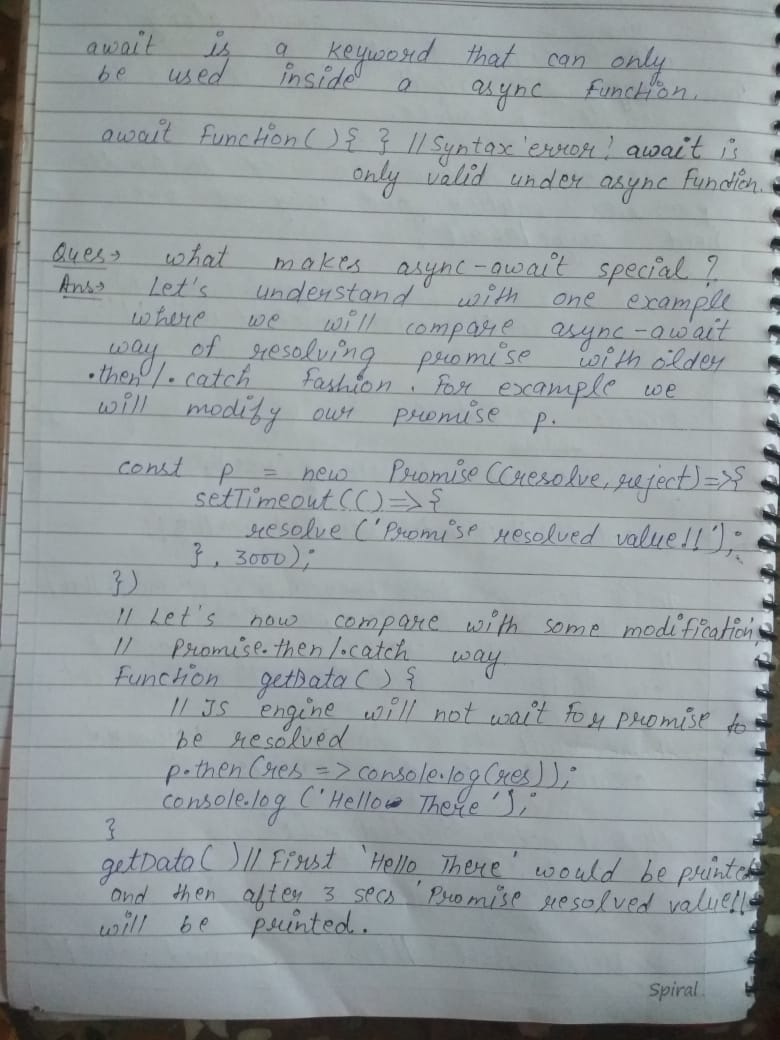 await is a keyword that can only
be used inside a async function.
await function() { } // Syntax error! await is
only valid under async function.
Ques→ what makes async-await special?
Ans→ Let's understand with one example
where we will compare async-await
way of resolving promise with older
.then/.catch fashion. For example we
will modify our promise p.
const p = new Promise((resolve, reject)=>{
setTimeout(()=>{
resolve ('Promise resolved value!!');
}, 3000);
})
// Let's now compare with some modification
// Promise.then/.catch way
function getData() {
// JS engine will not wait for promise to
be resolved
p.then(res => console.log(res));
console.log ('Hello There');
}
getData() // First 'Hello There' would be printed
and then after 3 secs 'Promise resolved value!!
will be printed.
Spiral